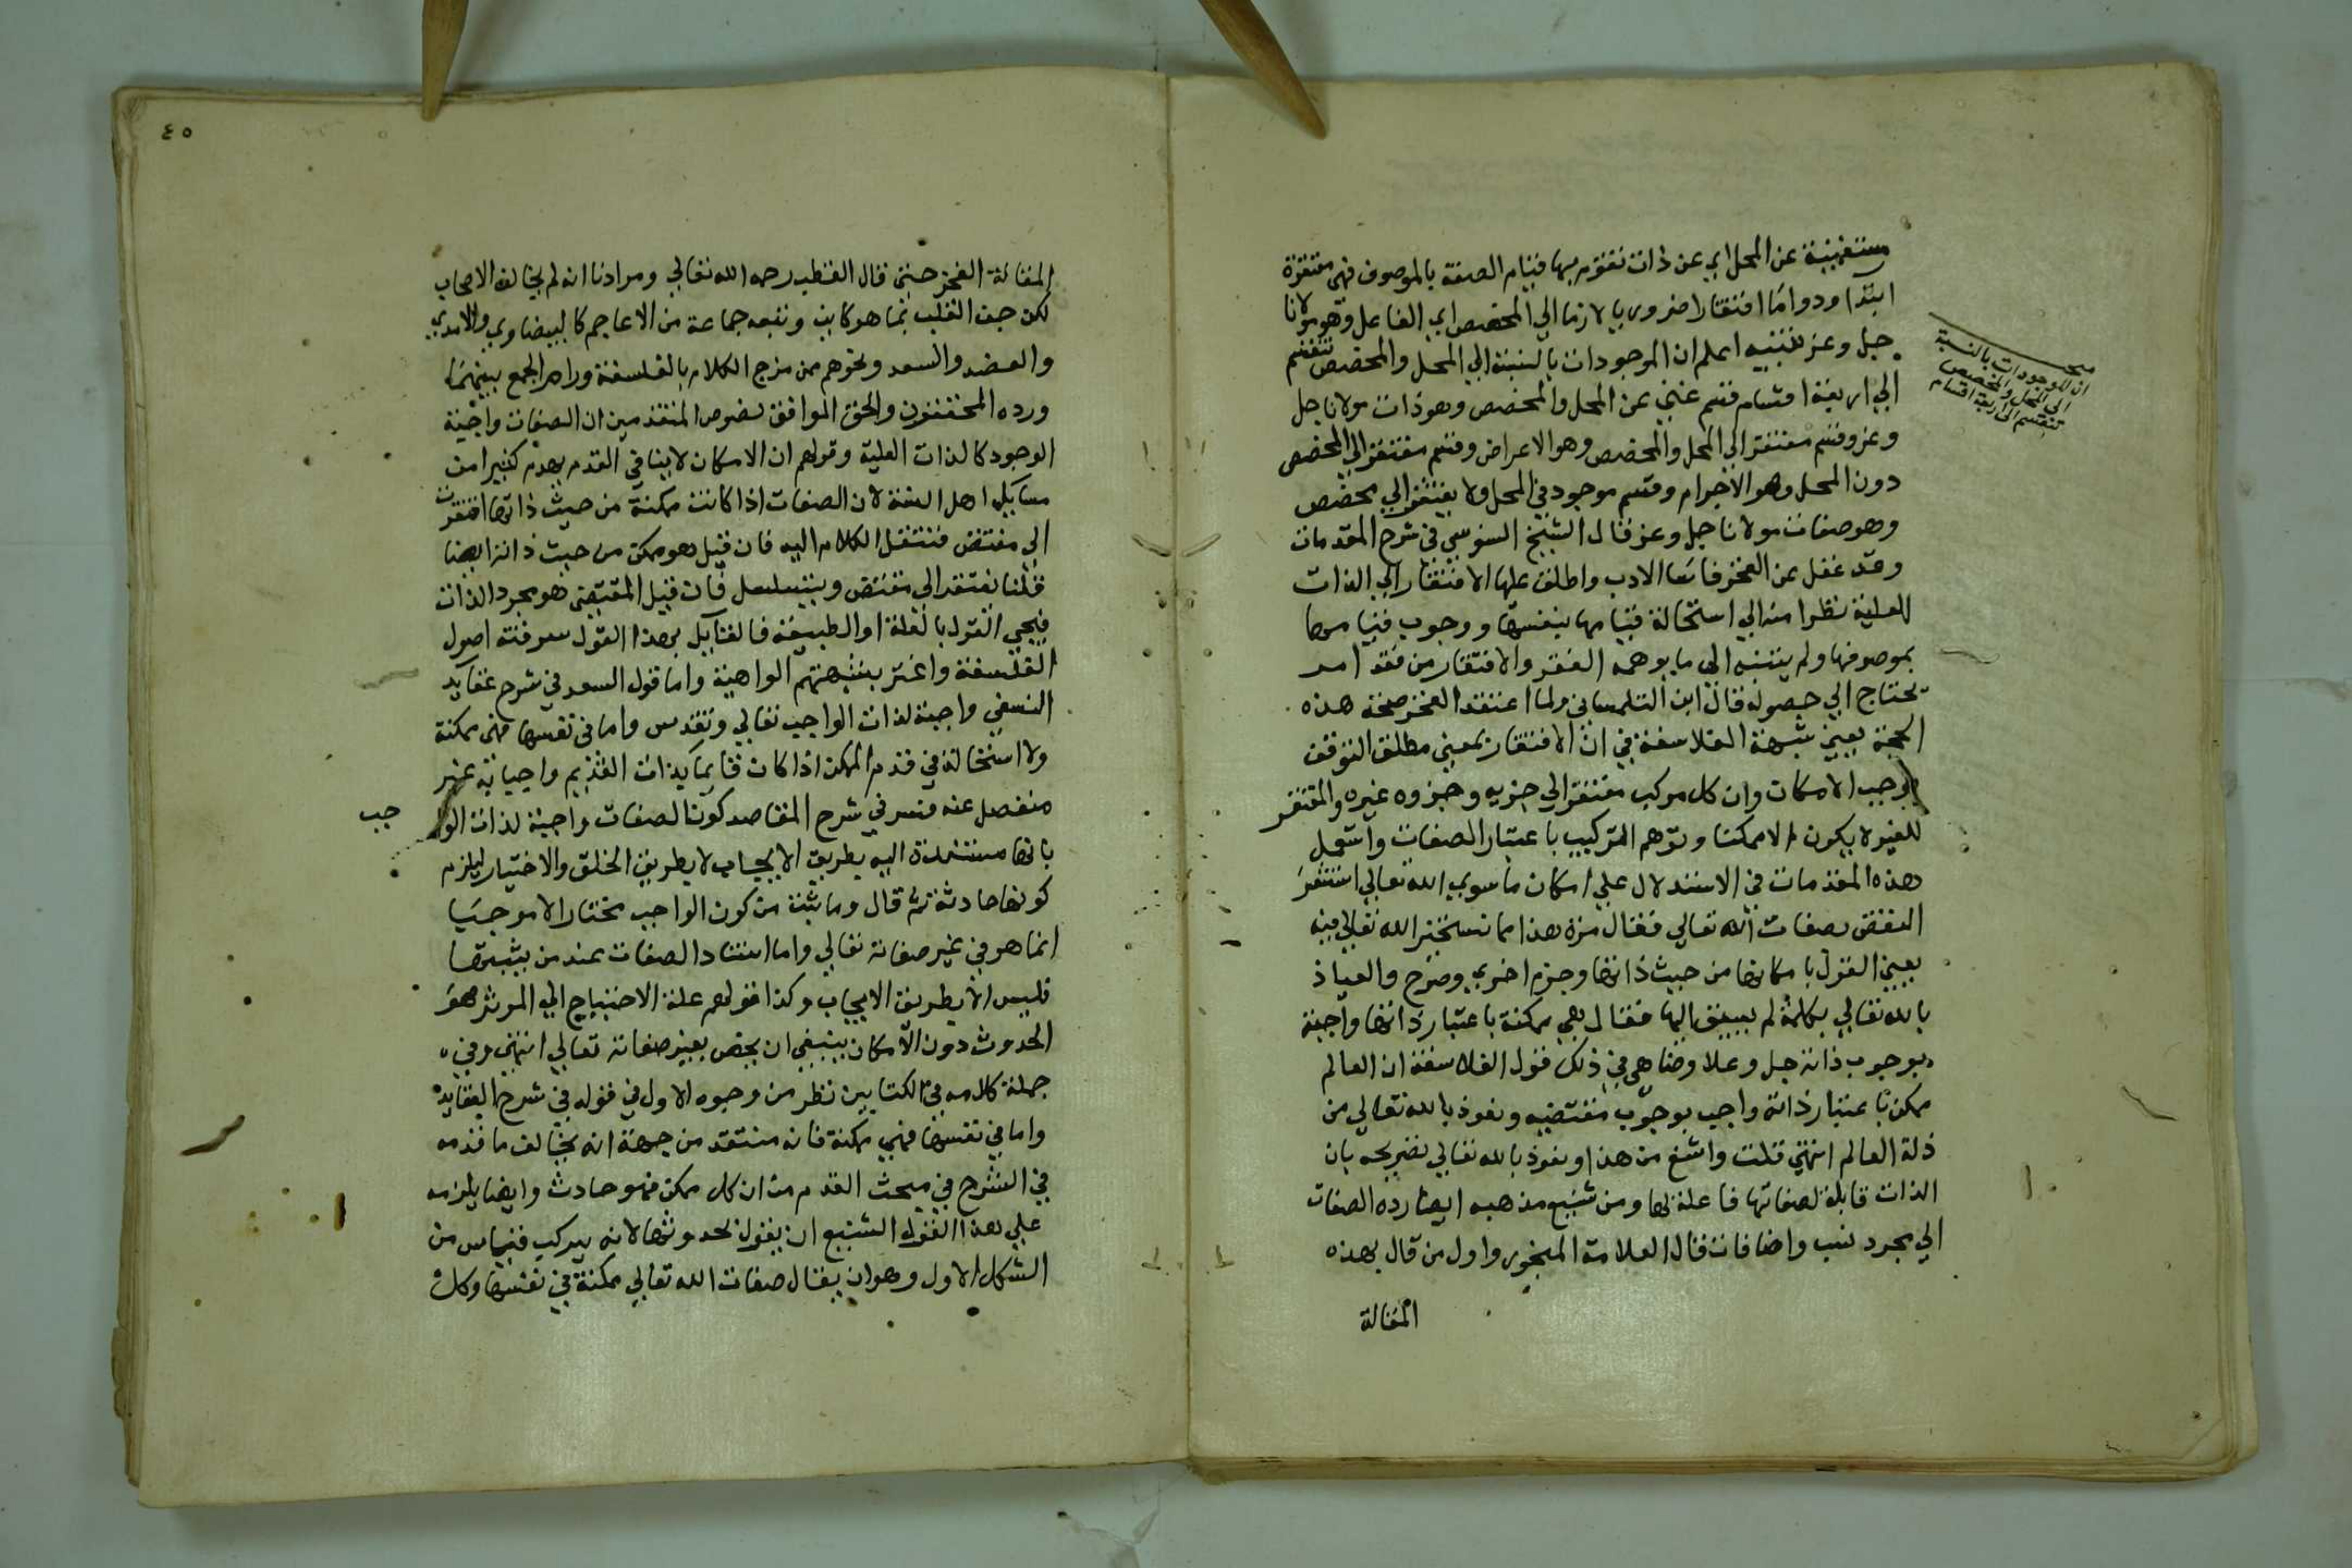 مستغنية عن المحل اي عن ذات تقوم بها قيام الصفة بالموصوف فهي مفتقرة
ابتدا ودواما افتقارا ضروريا لازما الي المخصص اي الفاعل وهو مولانا
جل وعز تنبيه اعلم ان الموجودات بالنسبة الي المحل والمخصص تنقسم
الي اربعة اقسام قسم غني عن المحل والمخصص وهو ذات مولانا جل
وعز وقسم مفتقر الي المحل والمخصص وهو الاعراض وقسم مفتقر الي المخصص
دون المحل وهو الاجرام وقسم موجود في المحل ولا يفتقر الي مخصص
وهو صفات مولانا جل وعز قال الشيخ السنوسي في شرح المقدمات
وقد غفل عن الفخر فاساء الادب واطلق عليها الافتقار الي الذات
العلية نظرا منه الي استحالة قيامها بنفسها ووجوب قيامها
بموصوفها ولم يتنبه الي ما يوهمه الفقر والافتقار من فقد امر
يحتاج الي حصوله قال ابن التلمساني ولما اعتقد الفخر صحة هذه
الحجة يعني شبهة الفلاسفة في ان الافتقار بمعني مطلق التوقف
يوجب الامكان وان كل مركب مفتقر الي جزيه وجزوه غيره والمفتقر
للغير لا يكون الا ممكنا وتوهم التركيب باعتبار الصفات واستعمل
هذه المقدمات في الاستدلال علي امكان ما سوي الله تعالي استشعر
النقض بصفات الله تعالي فقال مرة هذا مما نستخير الله تعالي فيه
يعني القول بامكانها من حيث ذاتها وجزم اخري وصرح والعياذ
بالله تعالي بكلمة لم يسبق اليها فقال هي ممكنة باعتبار ذاتها واجبة
بوجوب ذاته جل وعلا وضاهي في ذلك قول الفلاسفة ان العالم
ممكن باعتبار ذاته واجب بوجوب مقتضيه ونعوذ بالله تعالي من
زلة العالم انتهي قلت واشنع من هذا ونعوذ بالله تعالي تصريحه بان
الذات قابلة لصفاتها فاعلة لها ومن شنيع مذهبه ايضا رده الصفات
الي مجرد نسب واضافات قال العلامة المنجور واول من قال بهذه
المقالة
مبحث
ان الموجودات بالنسبة
الي المحل والمخصص
تنقسم الي اربعة اقسام
٤٥
المقالة الفخر حتي قال القطب رحمه الله تعالي ومرادنا انه لم يخالف الاصحاب
لكن جف القلب بما هو كاين وتبعه جماعة من الاعاجم كالبيضاوي والامدي
والعضد والسعد ونحوهم ممن مزج الكلام بالفلسفة ورام الجمع بينهما
ورده المحققون والحق الموافق لنصوص المتقدمين ان الصفات واجبة
الوجود كالذات العلية وقولهم ان الامكان لا ينافي القدم يهدم كثيرا من
مسايل اهل السنة لان الصفات اذا كانت ممكنة من حيث ذاتها افتقرت
الي مقتض فننقل الكلام اليه فان قيل هو ممكن من حيث ذاته ايضا
قلنا نفتقر الي مقتض ويتسلسل فان قيل المقتضي هو مجرد الذات
فيجي القول بالعلة او الطبيعة فالقايل بهذا القول سرقته اصول
الفلسفة واغتر بشبهتهم الواهية واما قول السعد في شرح عقايد
النسفي واجبة لذات الواجب تعالي وتقدس واما في نفسها فهي ممكنة
ولا استحالة في قدم الممكن اذا كان قايما بذات القديم واجبا به غير
منفصل عنه وفسر في شرح المقاصد كون الصفات واجبة لذات الوا
جب
بانها مستندة اليه بطريق الايجاب لا بطريق الخلق والاختيار ليلزم
كونها حادثة ثم قال وما ثبت من كون الواجب مختارا لا موجبا
انما هو في غير صفاته تعالي واما استناد الصفات عند من يثبتها
فليس الا بطريق الايجاب وكذا قولهم علة الاحتياج الي الموثر هو
الحدوث دون الامكان ينبغي ان يخص بغير صفاته تعالي انتهي وفي
جملة كلامه في الكتابين نظر من وجوه الاول في قوله في شرح العقايد
واما في نفسها فهي ممكنة فانه منتقد من جهة انه يخالف ما قدمه
في الشرح في مبحث القدم من ان كل ممكن فهو حادث وايضا يلزمه
علي هذا القول الشنيع ان يقول بحدوثها لانه يتركب قياس من
الشكل الاول وهو ان يقال صفات الله تعالي ممكنة في نفسها وكل